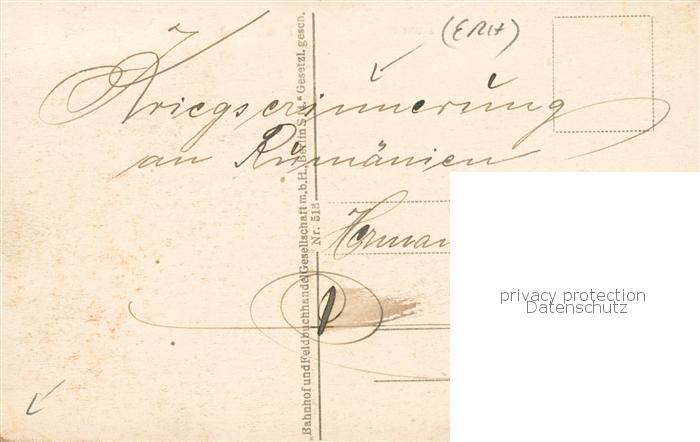 (ERH)
Kriegserinnerung
an Rumänien
Bahnhof und Feldbuchhandel Gesellschaft m.b.H., Berlin S "Gesetzl. gesch.
Nr. 513
privacy protection
Datenschutz